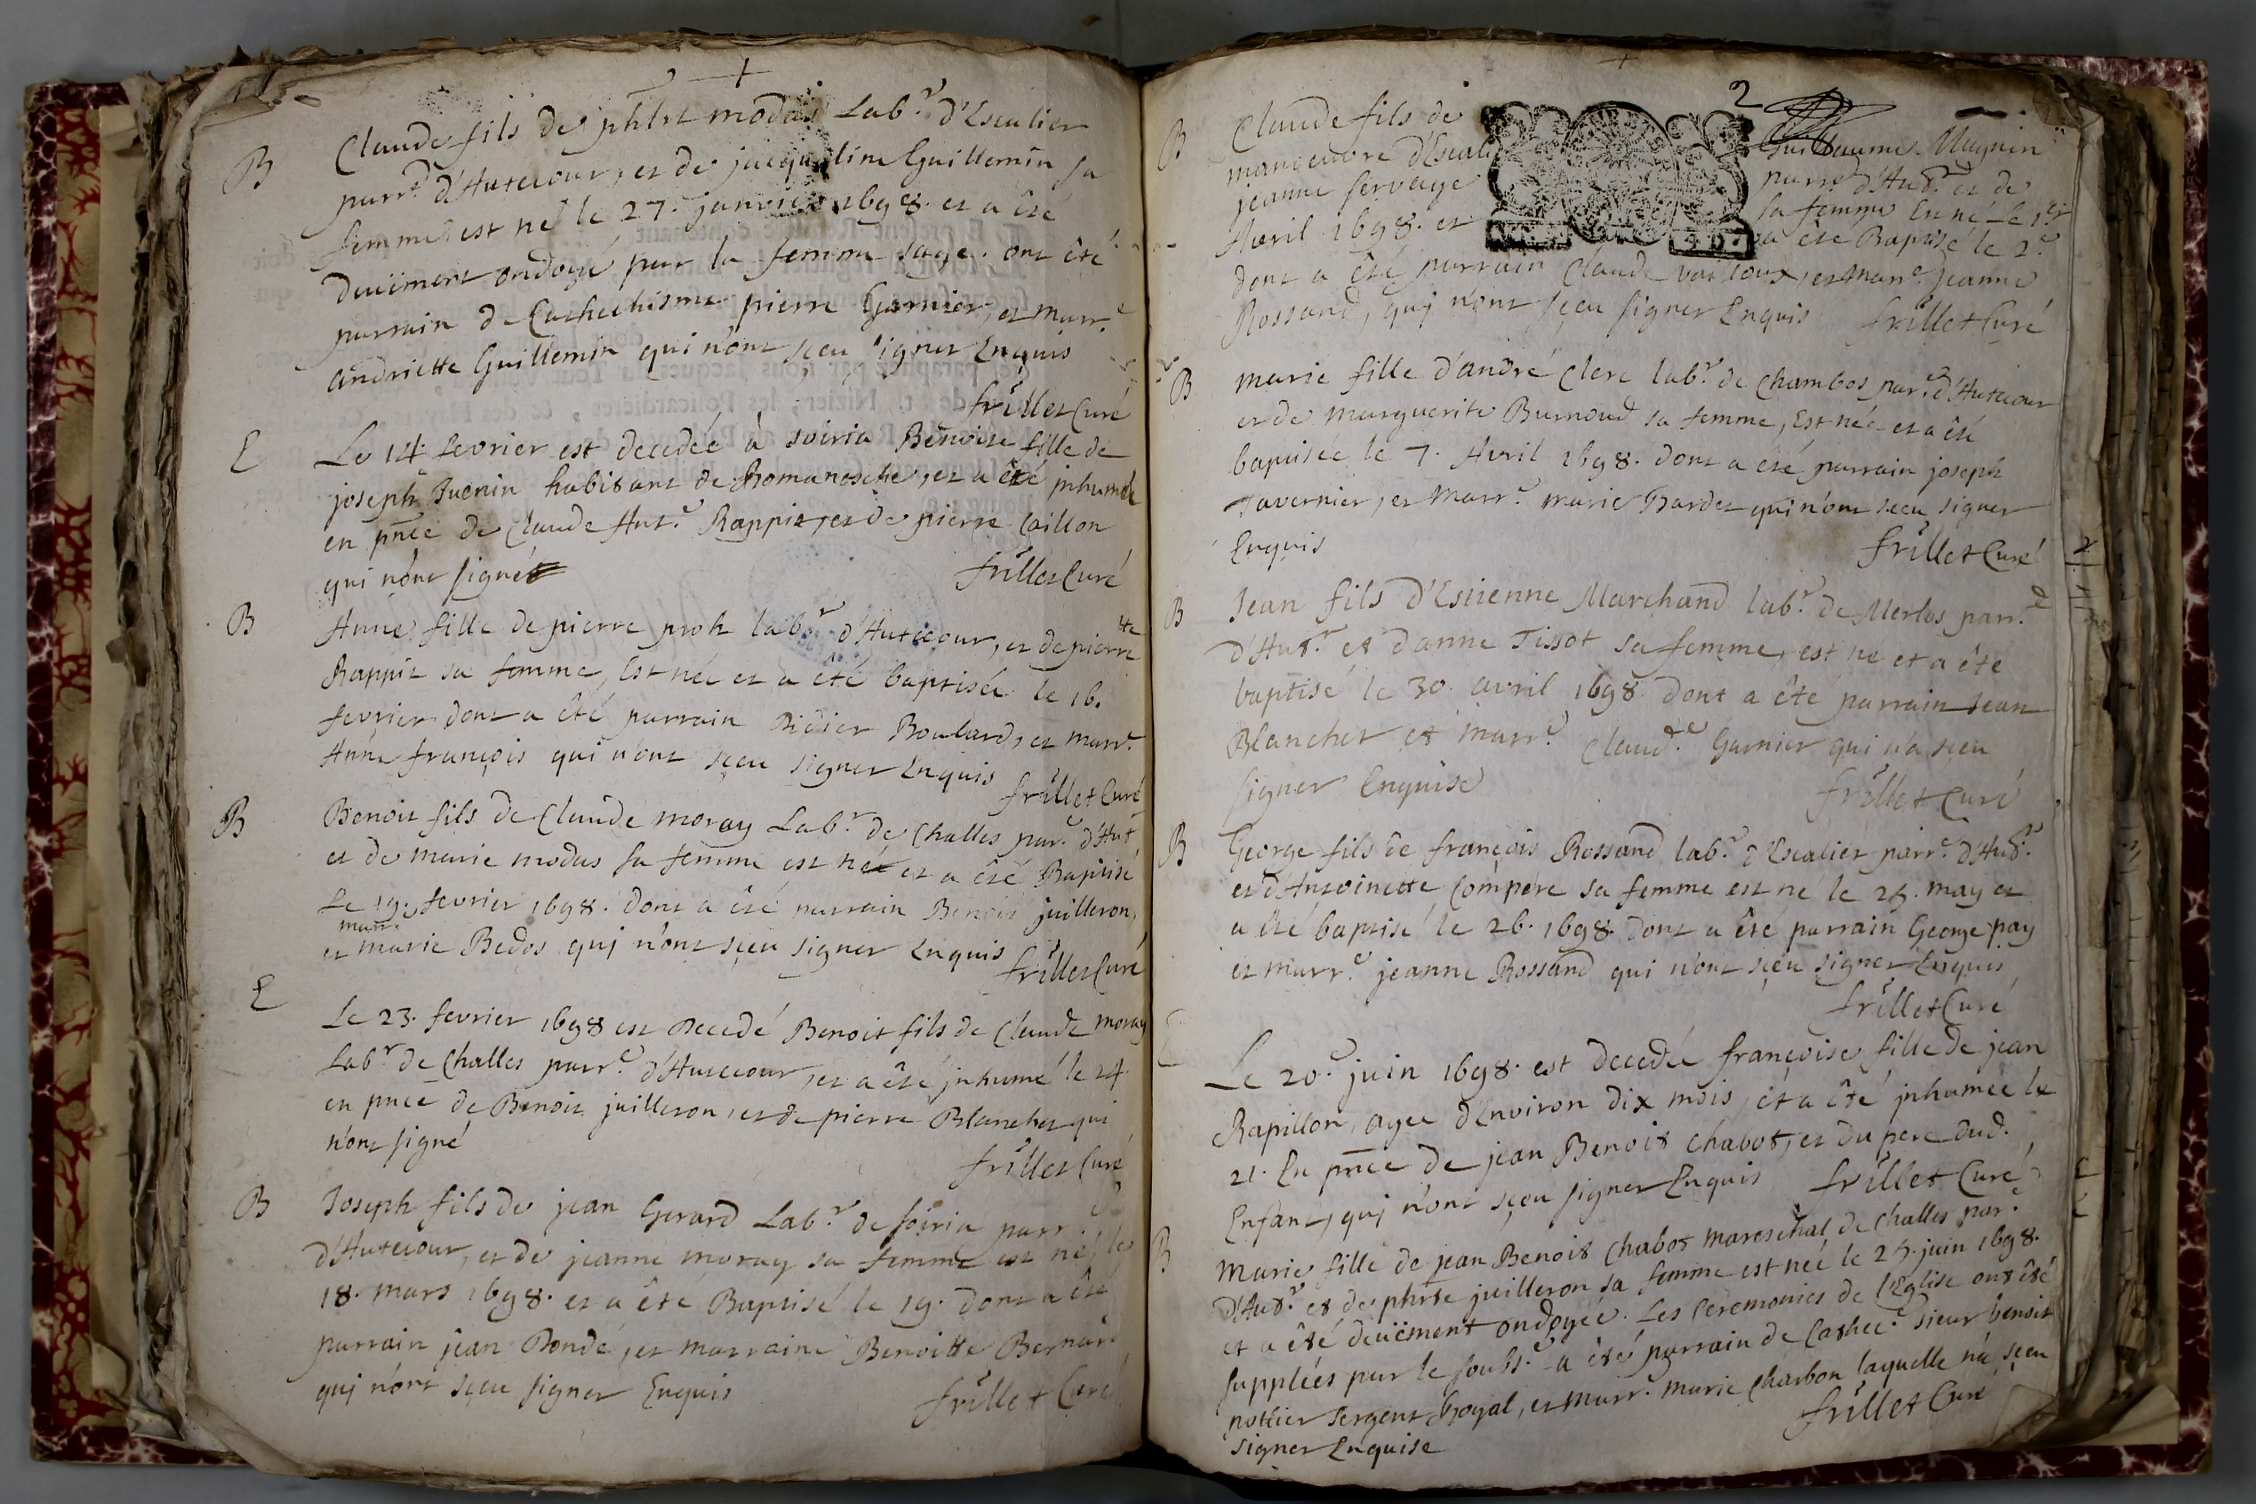 B
Claude fils de phlrt modas Lab.r d'Escalier
parr.e d'Autecour, et de jacqueline Guillemin sa
femme est né le 27. janvier 1698. et a été
deuëment ondoyé par la femme sage. ont été
parrain de Cathechisme pierre Garnier, et marr.e
andriette Guillemin qui n'ont sçeu signer Enquis
frillet Curé
E
Le 14 fevrier est decedée à soiria Benoise fille de
joseph Juenin habitant de Romanesche, et a été jnhumée
en pn̄ce de Claude Ant.e Rappit, et de pierre Caillon
qui n'ont signé
frillet Curé
B
Anne fille de pierre proh lab.r d'Autecour, et de pierrette
Rappit sa femme, Est née et a été baptisée le 16.
fevrier dont a été parrain Didier Boulard, et marr.e
Anne françois qui n'ont sçeu signer Enquis
frillet Curé
B
Benoit fils de Claude moray Lab.r de Challes par.e d'Aut.r
et de marie modas sa femme est né et a été Baptisé
Le 19. fevrier 1698. dont a été parrain Benoit juilleron,
et marr.e marie Bedos quj n'ont sçeu signer Enquis
frillet Curé
E
Le 23. fevrier 1698 est Decedé Benoit fils de Claude moray
Lab.r de Challes parr.e d'Autecour, et a été jnhumé le 24.
en pn̄ce de Benoit juilleron, et de pierre Blanchet qui
n'ont signé
frillet Curé
B
Joseph fils de jean Gerard Lab.r de soiria parr.e
d'Autecour, et de jeanne moray sa femme est né le
18. mars 1698. et a été Baptisé le 19. dont a été
parrain jean Bondé, et marraine Benoitte Bernard
quj n'ont sçeu signer Enquis
frillet Curé
2
B
Claude fils de Guillaume Magnin
manoeuvre d'Escali parr.e d'Aut.r et de
jeanne servaye sa femme En né le 1.er
Avril 1698. et a été Baptisé le 2.e
dont a été parrain Claude vaitoux, et marr.e jeanne
Rossand, quj n'ont sçeu signer Enquis frillet Curé
B
marie fille d'andré Clerc lab.r de Chambos par.e d'Autecour
et de marguerite Burnoud sa femme, Est née et a été
baptisée le 7. Avril 1698. dont a été parrain joseph
Tavernier, et Marr.e marie Bardet qui n'ont sçeu signer
Enquis
frillet Curé
B
Jean fils d'Estienne Marchand lab.r de Merlos parr.e
d'Aut.r et d'anne Tissot sa femme, est né et a été
baptisé le 30. avril 1698 dont a été parrain Jean
Blanchet et marr.e Claud.e Garnier qui n'a sçeu
signer Enquise
frillet Curé
B
George fils de françois Rossand lab.r d'Escalier parr.e d'Aut.r
et d'Antoinette Compere sa femme est né le 25. may et
a été baptisé le 26. 1698. dont a été parrain George pay
et marr.e jeanne Rossand qui n'ont sçeu signer Enquis
frillet Curé
E
Le 20.e juin 1698. est decedée françoise fille de jean
Rapillon, agee d'Environ dix mois, et a été jnhumée le
21. En pn̄ce de jean Benoit Chabot, et du pere dud.
Enfant, quj n'ont sçeu signer Enquis frillet Curé
B
Marie fille de jean Benoit Chabot mareschal de Challes par.e
d'Aut.r et de phrte juilleron sa femme est née le 25. juin 1698.
et a été deuëment ondoyée. Les Ceremonies de l'Eglise ont été
suppléés par le souss.é a été parrain de Cathec.e sieur benoit
nottier sergent Royal, et marr.e marie Charbon laquelle n'a sçeu
signer Enquise
frillet Curé